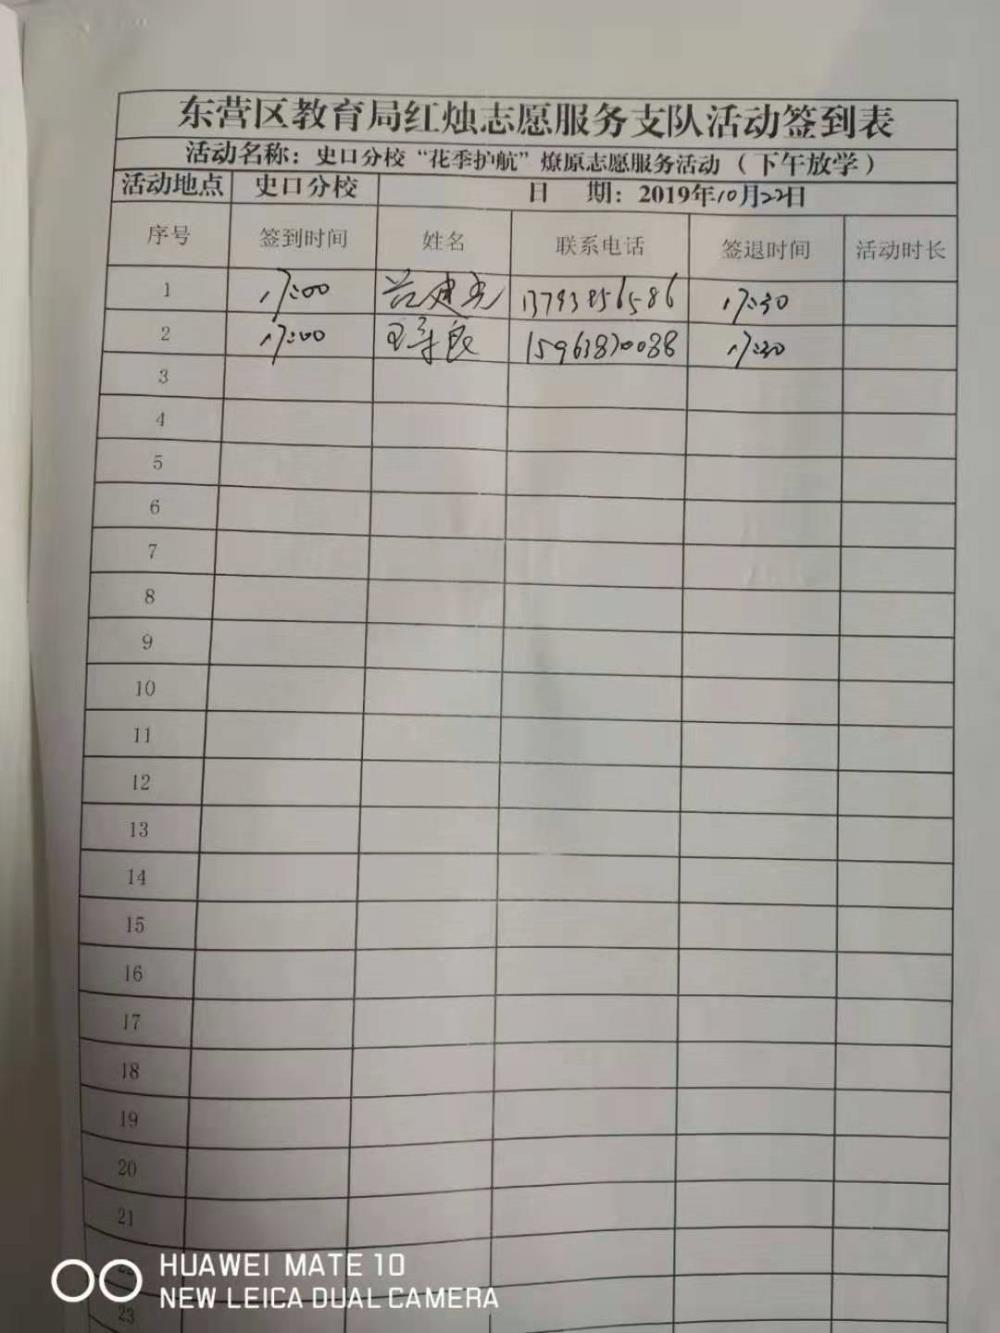 东营区教育局红烛志愿服务支队活动签到表
活动名称：史口分校“花季护航”燎原志愿服务活动（下午放学）
活动地点 史口分校 日 期：2019年10月22日
序号 签到时间 姓名 联系电话 签退时间 活动时长
1 17:00 建光 13793856586 17:30
2 17:00 王 良 15963870088 17:30
3
4
5
6
7
8
9
10
11
12
13
14
15
16
17
18
19
20
21
23
HUAWEI MATE 10
NEW LEICA DUAL CAMERA